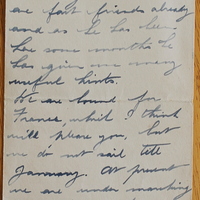 are fast friends already
and as he has been
here some months he
has given me many
useful hints.
We are bound for
France, which I think
will please you, but
we do not sail till
January. At present
we are under marching